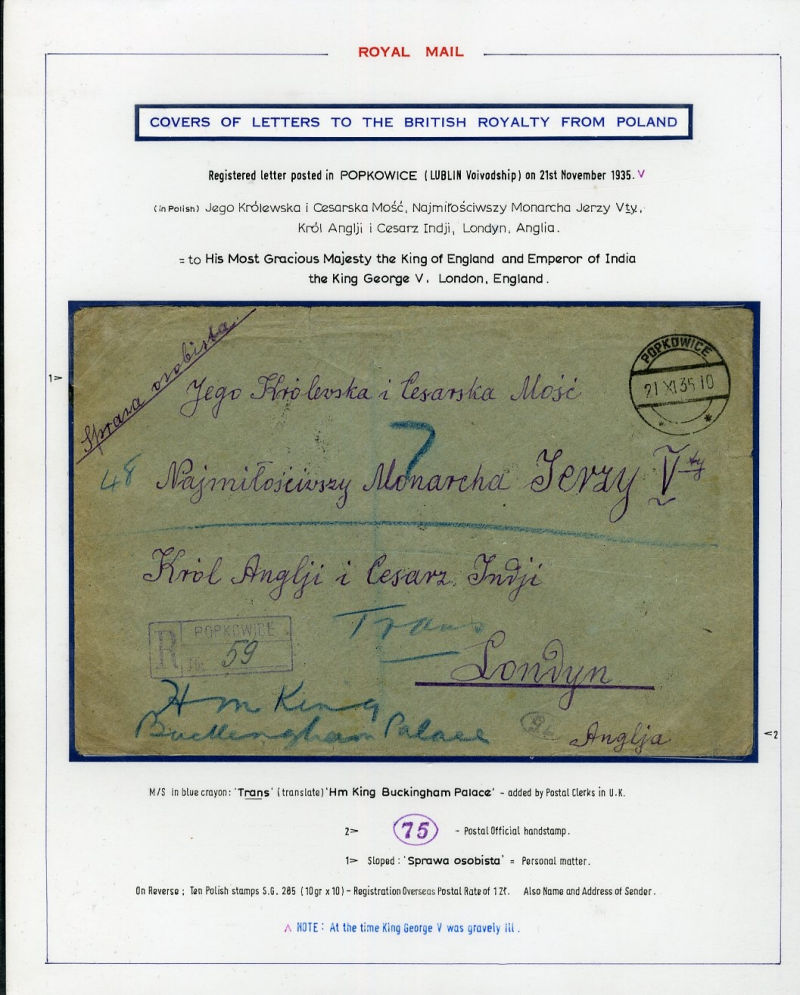 ROYAL MAIL
COVERS OF LETTERS TO THE BRITISH ROYALTY FROM POLAND
Registered letter posted in POPKOWICE (LUBLIN Voivodship) on 21st November 1935. V
(in Polish) Jego Królewska i Cesarska Mość, Najmiłościwszy Monarcha Jerzy Vty,
Król Anglji i Cesarz Indji, Londyn, Anglia.
= to His Most Gracious Majesty the King of England and Emperor of India
the King George V. London, England.
1>
Sprawa osobista.
POPKOWICE
21 XI 35 10
Jego Królewska i Cesarska Mość
7
48
Najmiłościwszy Monarcha Jerzy V-ty
Król Anglji i Cesarz Indji
Trans
R POPKOWICE
№ 59
Londyn
Hm King
Buckingham Palace
Anglja
<2
M/S in blue crayon: 'Trans' (translate) 'Hm King Buckingham Palace' - added by Postal Clerks in U.K.
2> 75 - Postal Official handstamp.
1> Sloped: 'Sprawa osobista' = Personal matter.
On Reverse; Ten Polish stamps S.G. 285 (10gr x 10) - Registration Overseas Postal Rate of 1 Zł. Also Name and Address of Sender.
Λ NOTE: At the time King George V was gravely ill.